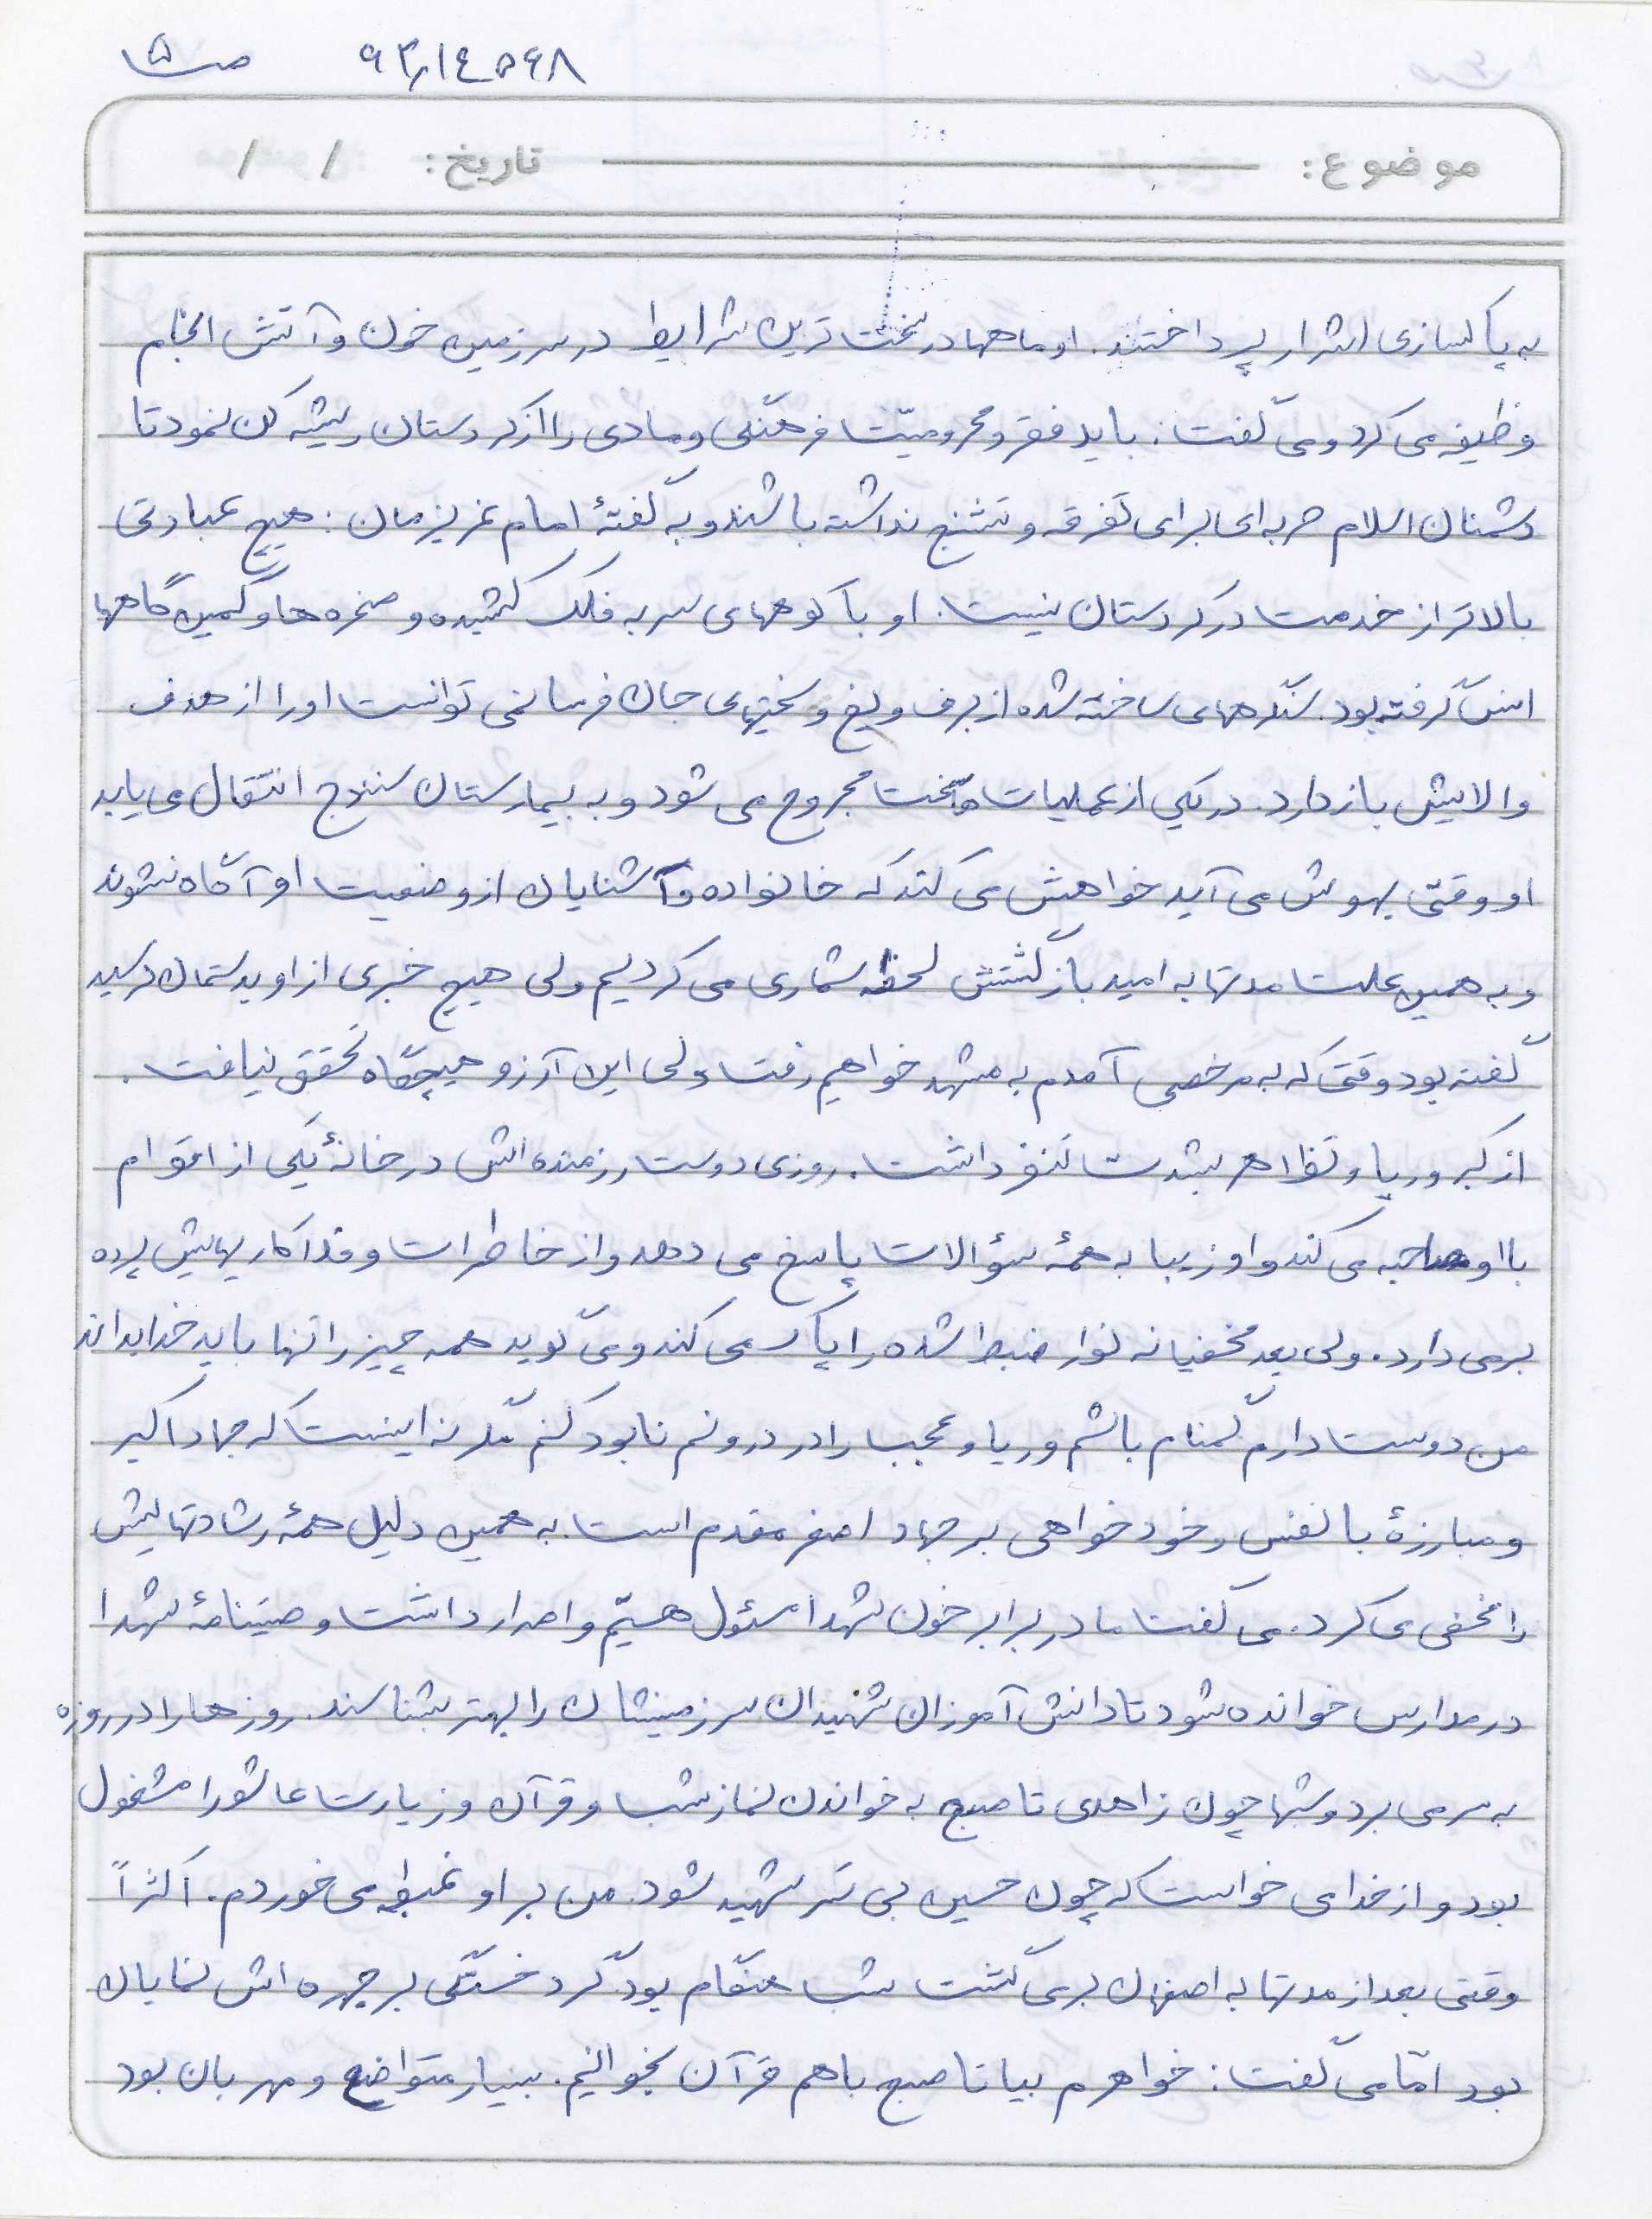 ص ۵
موضوع: تاریخ: / /
به پاکسازی اشرار پرداختند. او ماهها در سخت ترین شرایط در سرزمین خون و آتش انجام
وظیفه می کرد و می گفت: باید فقر و محرومیّت فرهنگی و مادی را از کردستان ریشه کن نمود تا
دشمنان اسلام حربه ای برای تفرقه و تشنج نداشته باشند و به گفتهٔ امام عزیزمان: هیچ عبادتی
بالاتر از خدمت در کردستان نیست. او با کوههای سر به فلک کشیده و صخره ها و کمین گاهها
انس گرفته بود. سنگرهای ساخته شده از برف و یخ و سختیهای جان فرسا نمی توانست او را از هدف
والایش باز دارد. در یکی از عملیات سخت مجروح می شود و به بیمارستان سنندج انتقال می یابد
او وقتی بهوش می آید خواهش می کند که خانواده و آشنایان از وضعیت او آگاه نشوند
و به همین علت مدتها به امید بازگشتش لحظه شماری می کردیم ولی هیچ خبری از او بدستمان نرسید
گفته بود وقتی که به مرخصی آمدم به مشهد خواهیم رفت ولی این آرزو هیچگاه تحقق نیافت.
از کبر و ریا و تظاهر بشدت تنفر داشت. روزی دوست رزمنده اش در خانهٔ یکی از اقوام
با او مصاحبه می کند و او زیبا به همهٔ سؤالات پاسخ می دهد و از خاطرات و فداکاریهایش پرده
برمی دارد. ولی بعد مخفیانه نوار ضبط شده را پاک می کند و می گوید همه چیز را تنها باید خدا بداند
من دوست دارم گمنام باشم و ریا و عجب را در درونم نابود کنم مگر نه اینست که جهاد اکبر
و مبارزهٔ با نفس و خودخواهی بر جهاد اصغر مقدم است. به همین دلیل همهٔ رشادتهایش
را مخفی می کرد. می گفت ما در برابر خون شهدا مسئول هستیّم و اصرار داشت وصیتنامهٔ شهدا
در مدارس خوانده شود تا دانش آموزان شهیدان سرزمینشان را بهتر بشناسند. روزها را در روزه
به سر می برد و شبها چون زاهدی تا صبح به خواندن نماز شب و قرآن و زیارت عاشورا مشغول
بود و از خدا می خواست که چون حسین بی سر شهید شود. من بر او غبطه می خوردم. اکثراً
وقتی بعد از مدتها به اصفهان برمی گشت شب هنگام بود گرد خستگی بر چهره اش نمایان
بود امّا می گفت: خواهرم بیا تا صبح باهم قرآن بخوانیم. بسیار متواضع و مهربان بود